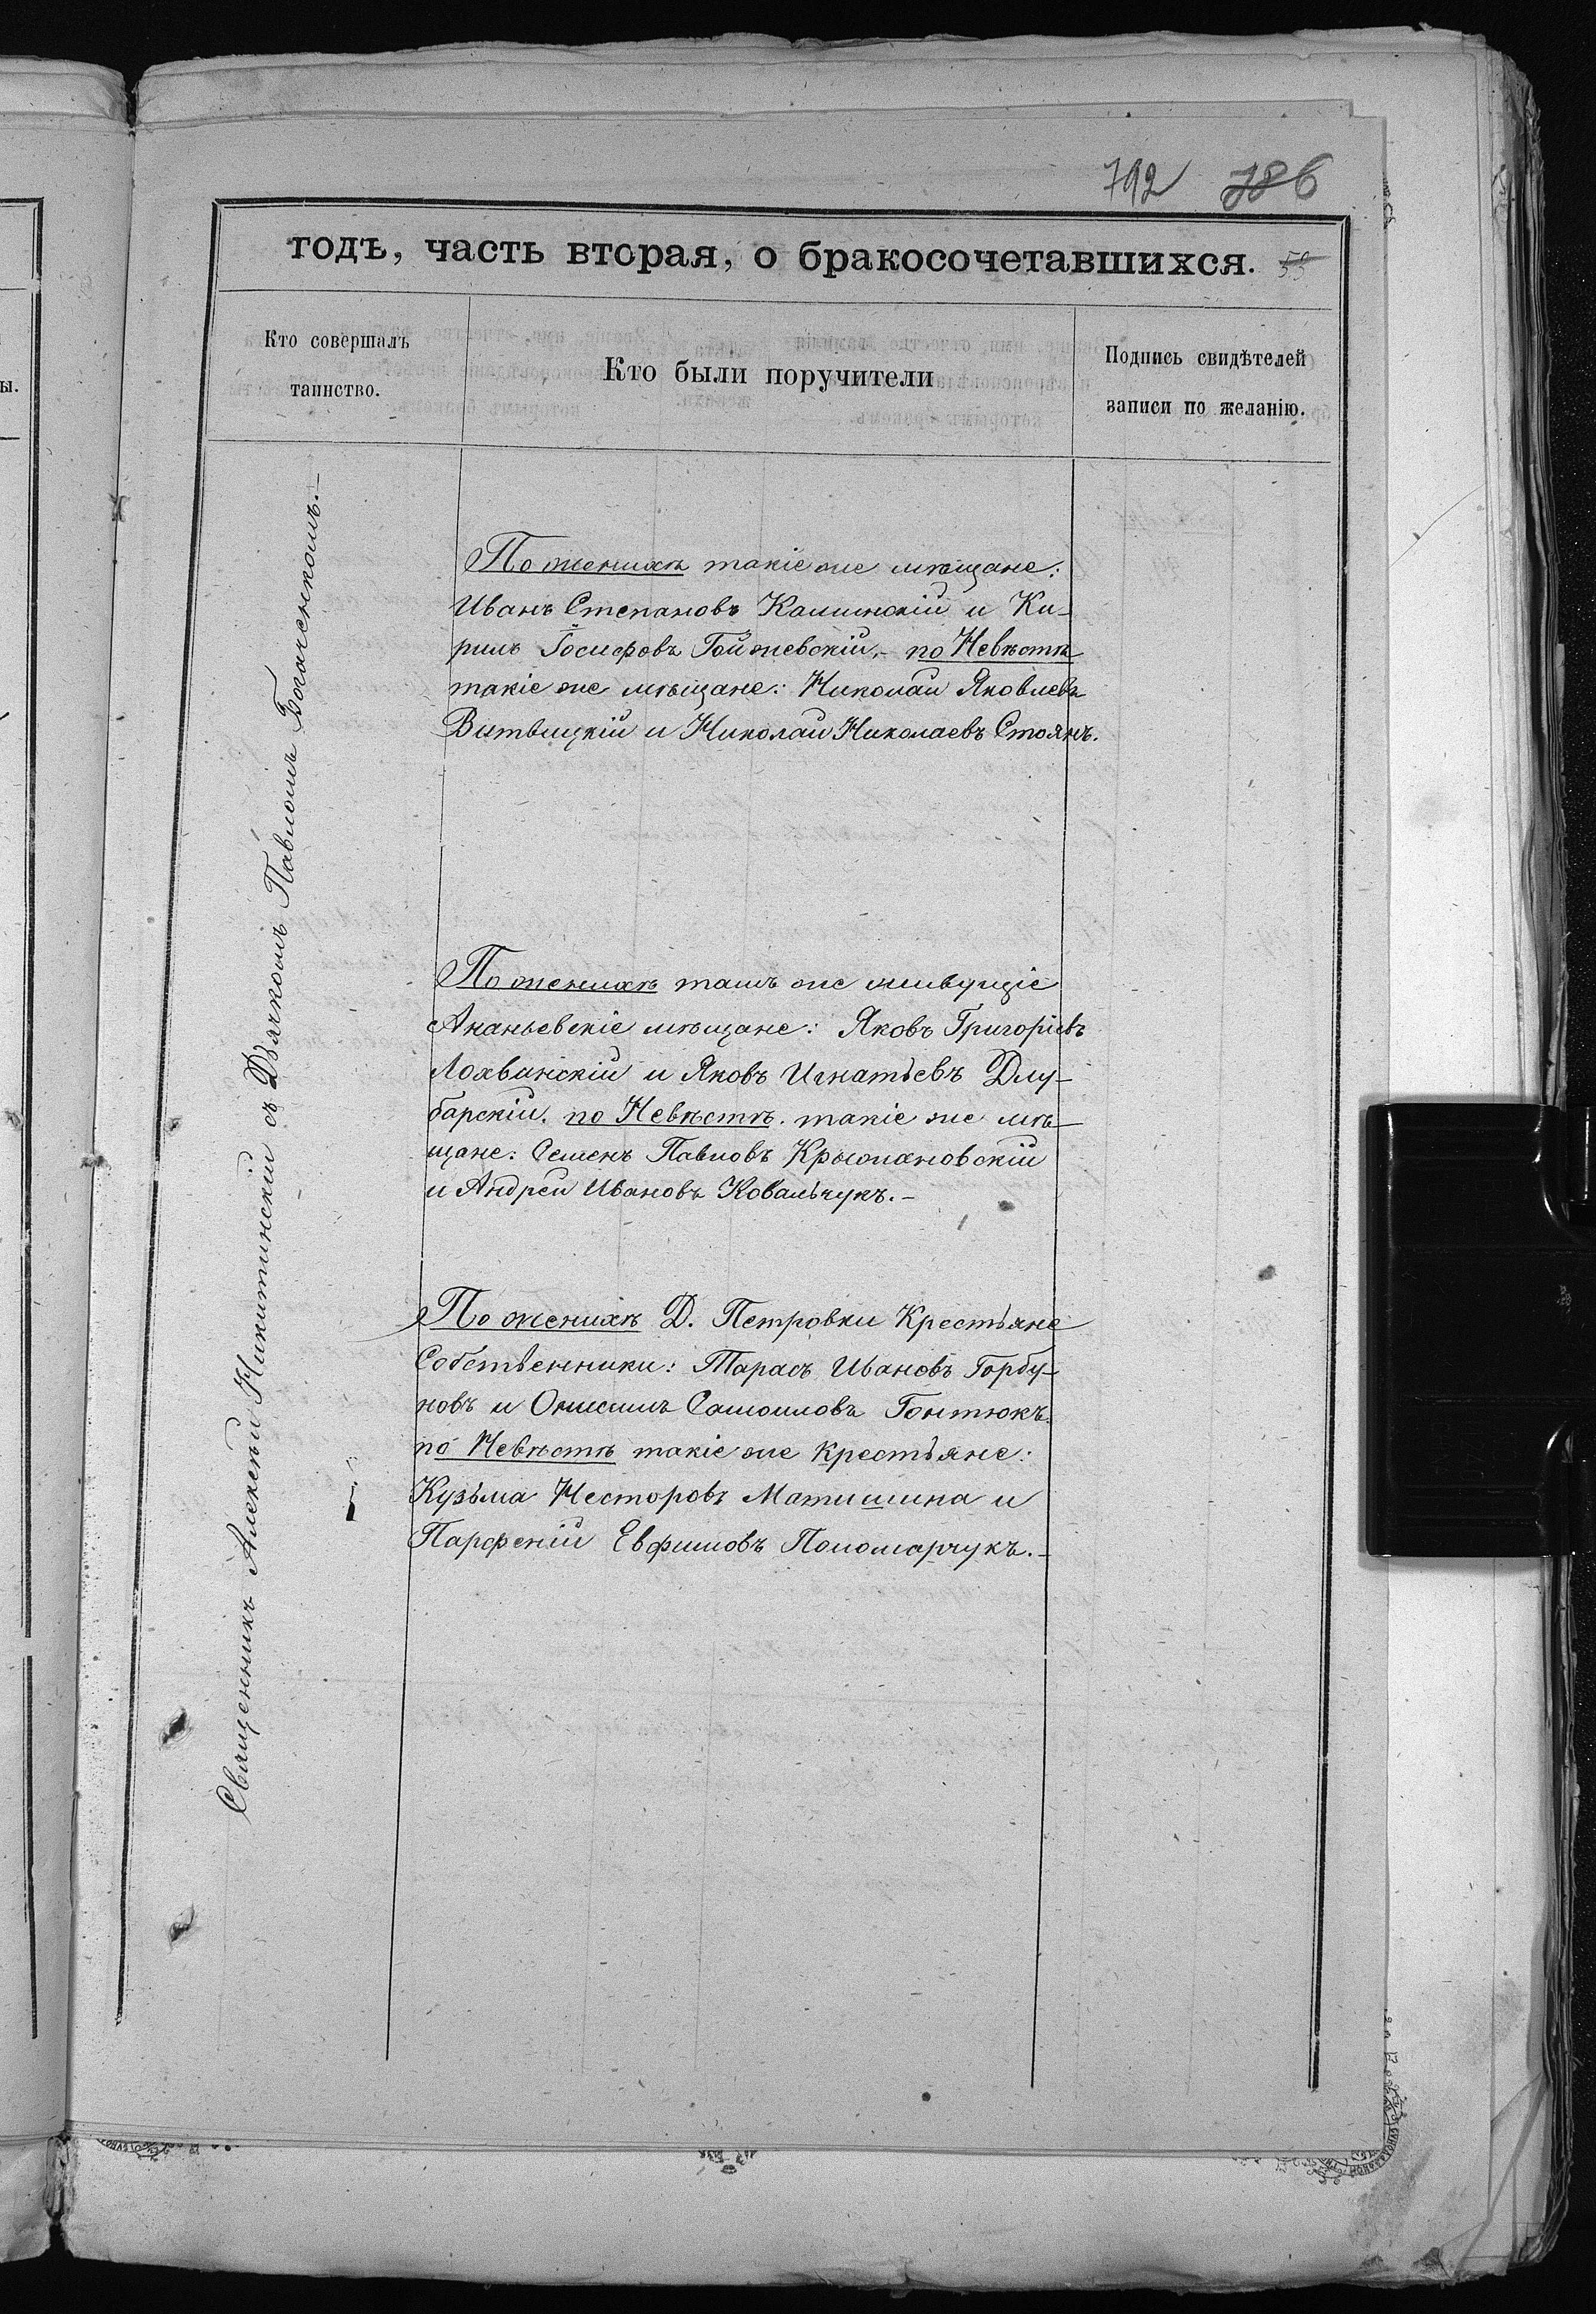 792 786
годъ, часть вторая, о бракосочетавшихся. 53
Кто совершалъ
таинство.
Кто были поручители
Подпись свидѣтелей
записи по желанію.
ы.
Священникъ Алексѣй Никитинскій съ Дьячкомъ Павломъ Богаченкомъ.–
По женихѣ такіе же мѣщане:
Иванъ Степановъ Калинскій и Ки-
рилъ Іосифовъ Гойжевскій,– по Невѣстѣ
такіе же мѣщане: Николай Яковлевъ
Витвицкій и Николай Николаевъ Стоянъ.
По женихѣ тамъ же живущіе
Ананьевскіе мѣщане: Яковъ Григоріевъ
Лохвинскій и Яковъ Игнатьевъ Длу-
барскій. по Невѣстѣ. такіе же мѣ-
щане: Семенъ Павловъ Крыжановскій
и Андрей Ивановъ Ковальчукъ.–
По женихѣ Д. Петровки Крестьяне
Собственники: Тарасъ Ивановъ Горбу-
новъ и Онисимъ Самоиловъ Гонтюкъ.
по Невѣстѣ такіе же крестьяне:
Кузьма Несторовъ Матишина и
Парфеній Евфимовъ Пономарчукъ.–